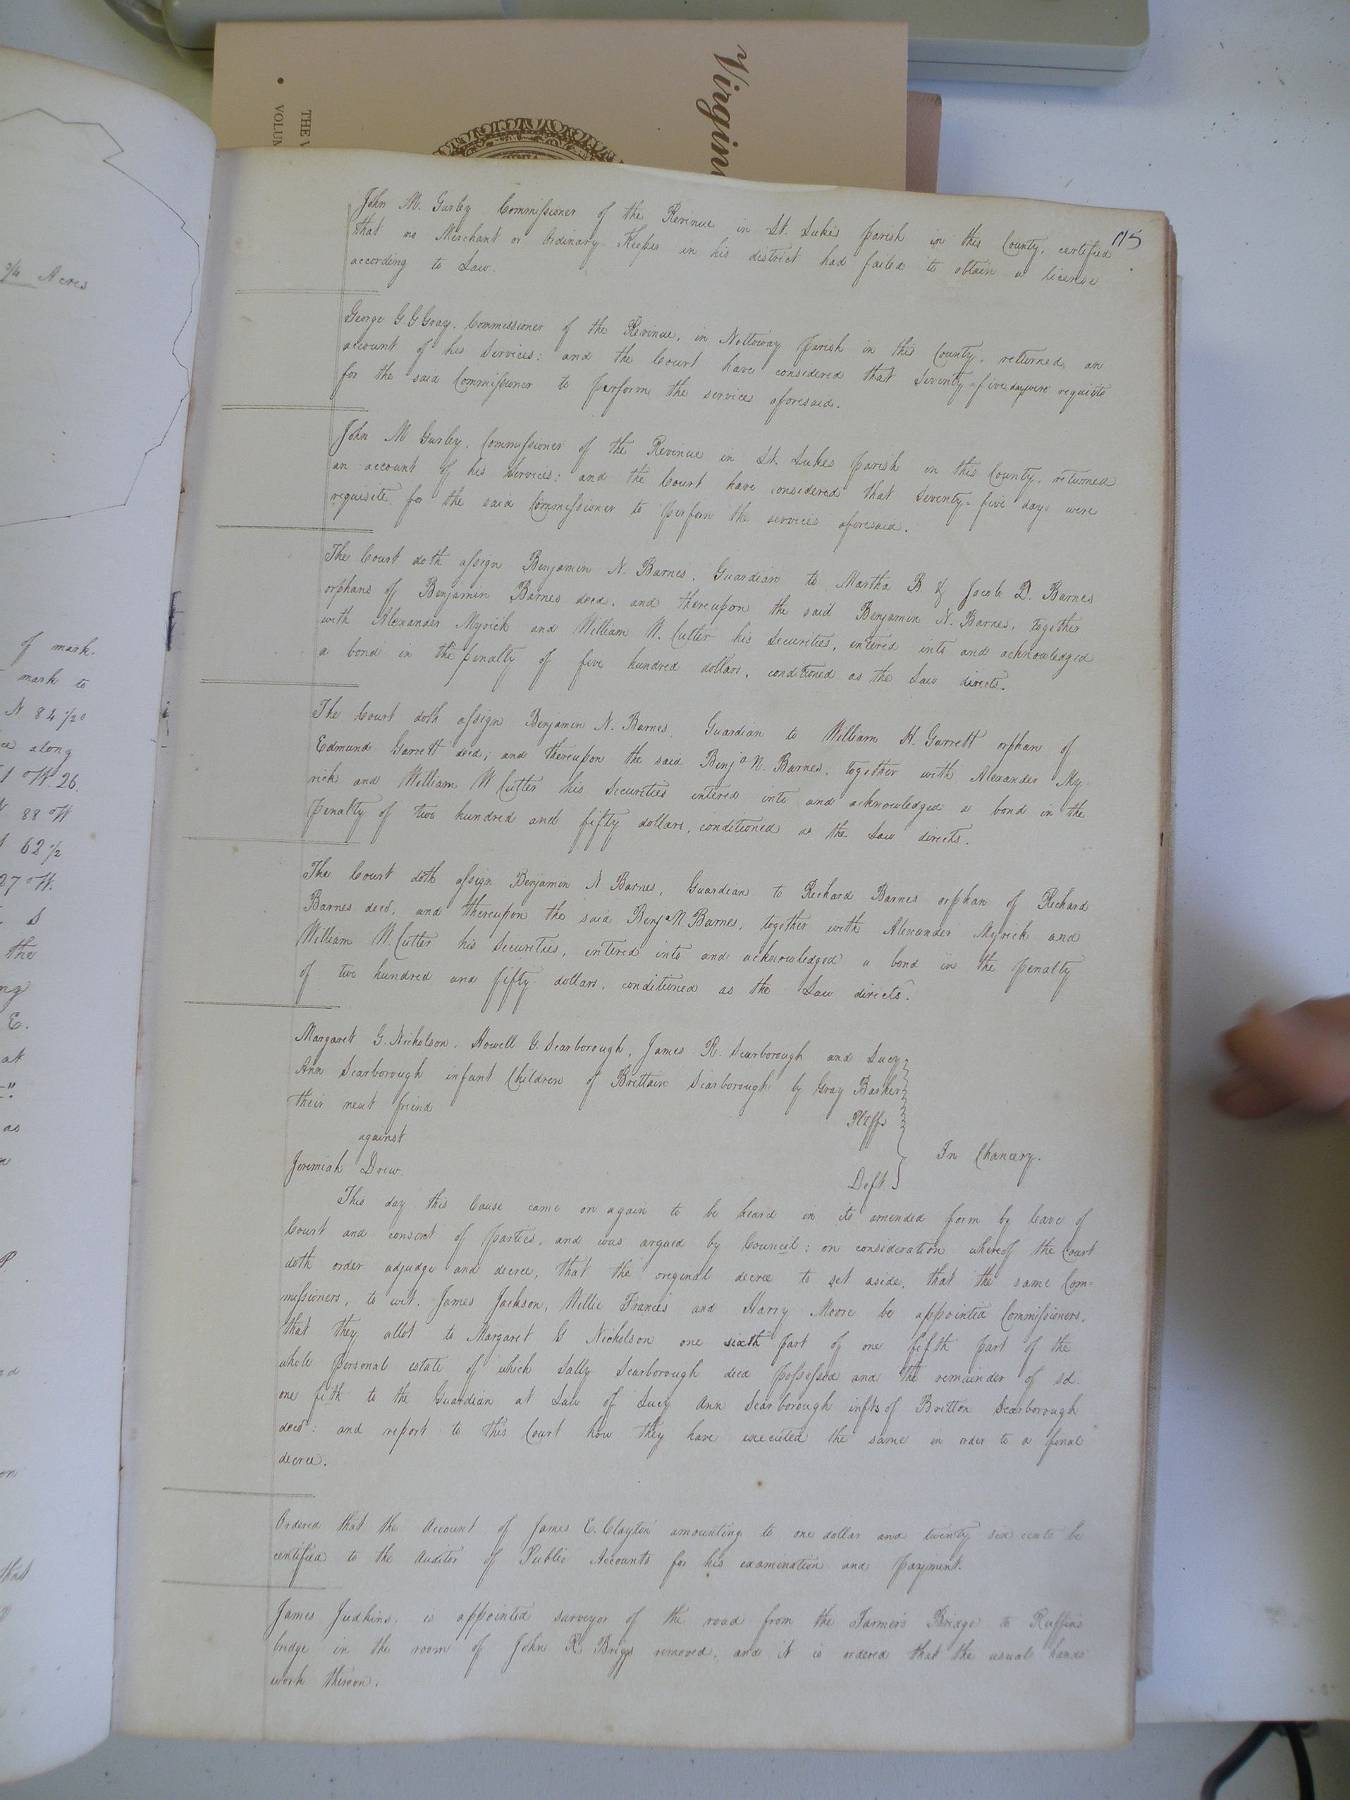 Virgin
THE V
VOLUM
3/4 Acres
of mark.
mark to
N 84 1/2 °
along
W. 26.
88 W
62 1/2
27 °W.
S
the
ng
E.
at
as
P.
on
that
115
John M. Gurley Commissioner of the Revenue in St. Lukes parish in this County, certified
that no Merchant or Ordinary Keeper in his district had failed to obtain a license
according to Law.
George G. G Gray, Commissioner of the Revenue, in Nottoway parish in this County, returned an
account of his Services; and the Court have considered that Seventy-five days were requisite
for the said Commissioner to perform the services aforesaid.
John M Gurley, Commissioner of the Revenue in St. Lukes parish in this County, returned
an account of his services; and the Court have considered that Seventy-five days were
requisite for the said Commissioner to perform the services aforesaid.
The Court doth assign Benjamin N. Barnes, Guardian to Martha B & Jacob D. Barnes
orphans of Benjamin Barnes decd. and thereupon the said Benjamin N. Barnes, together
with Alexander Myrick and William W. Cutler his Securities, entered into and acknowledged
a bond in the penalty of five hundred dollars, conditioned as the Law directs.
The Court doth assign Benjamin N. Barnes, Guardian to William H. Garrett orphan of
Edmund Garrett decd; and thereupon the said Benja N. Barnes, together with Alexander My-
rick and William W Cutler his Securities entered into and acknowledged a bond in the
Penalty of two hundred and fifty dollars, conditioned as the Law directs.
The Court doth assign Benjamin N Barnes, Guardian to Richard Barnes orphan of Richard
Barnes decd, and thereupon the said Benja N Barnes, together with Alexander Myrick and
William W. Cutler his Securities, entered into and acknowledged a bond in the penalty
of two hundred and fifty dollars, conditioned as the Law directs.
Margaret G. Nicholson, Howell G. Scarborough, James R. Scarborough and Lucy
Ann Scarborough infant Children of Brittain Scarborough by Gray Barker
their next friend Pltffs
against In Chancery.
Jeremiah Drew Deft
This day this Cause came on again to be heard in its amended form by leave of
Court and consent of parties, and was argued by Council; on consideration whereof the Court
doth order adjudge and decree, that the original decree to set aside, that the same Com-
missioners, to wit, James Jackson, Willie Francis and Harry Moore be appointed Commissioners,
that they allot to Margaret G Nicholson one sixth part of one fifth part of the
whole personal estate of which Sally Scarborough died possessed and the remainder of sd.
one fifth to the Guardian at Law of Lucy Ann Scarborough infts of Britton Scarborough
decd: and report to this Court how they have executed the same in order to a final
decree.
Ordered that the Account of James E. Clayton amounting to one dollar and twenty six cents be
certified to the Auditor of Public Accounts for his examination and payment.
James Judkins is appointed surveyor of the road from the Farmer's Bridge to Ruffins
bridge in the room of John R. Briggs removed, and it is ordered that the usual hands
work thereon.